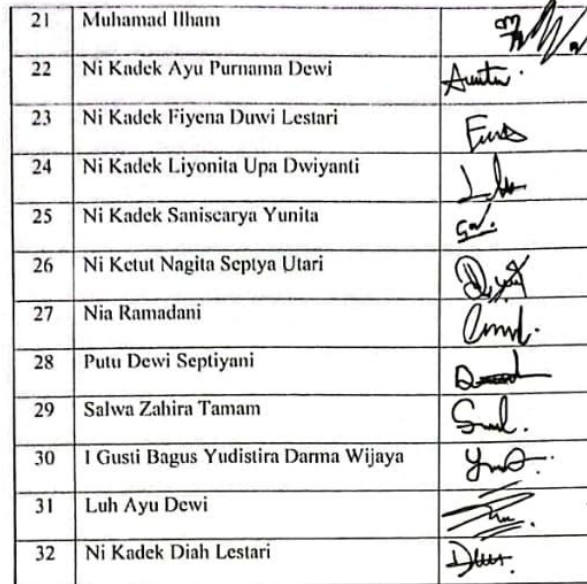 21 Muhamad Ilham
22 Ni Kadek Ayu Purnama Dewi
23 Ni Kadek Fiyena Duwi Lestari
24 Ni Kadek Liyonita Upa Dwiyanti
25 Ni Kadek Saniscarya Yunita
26 Ni Ketut Nagita Septya Utari
27 Nia Ramadani
28 Putu Dewi Septiyani
29 Salwa Zahira Tamam
30 I Gusti Bagus Yudistira Darma Wijaya
31 Luh Ayu Dewi
32 Ni Kadek Diah Lestari